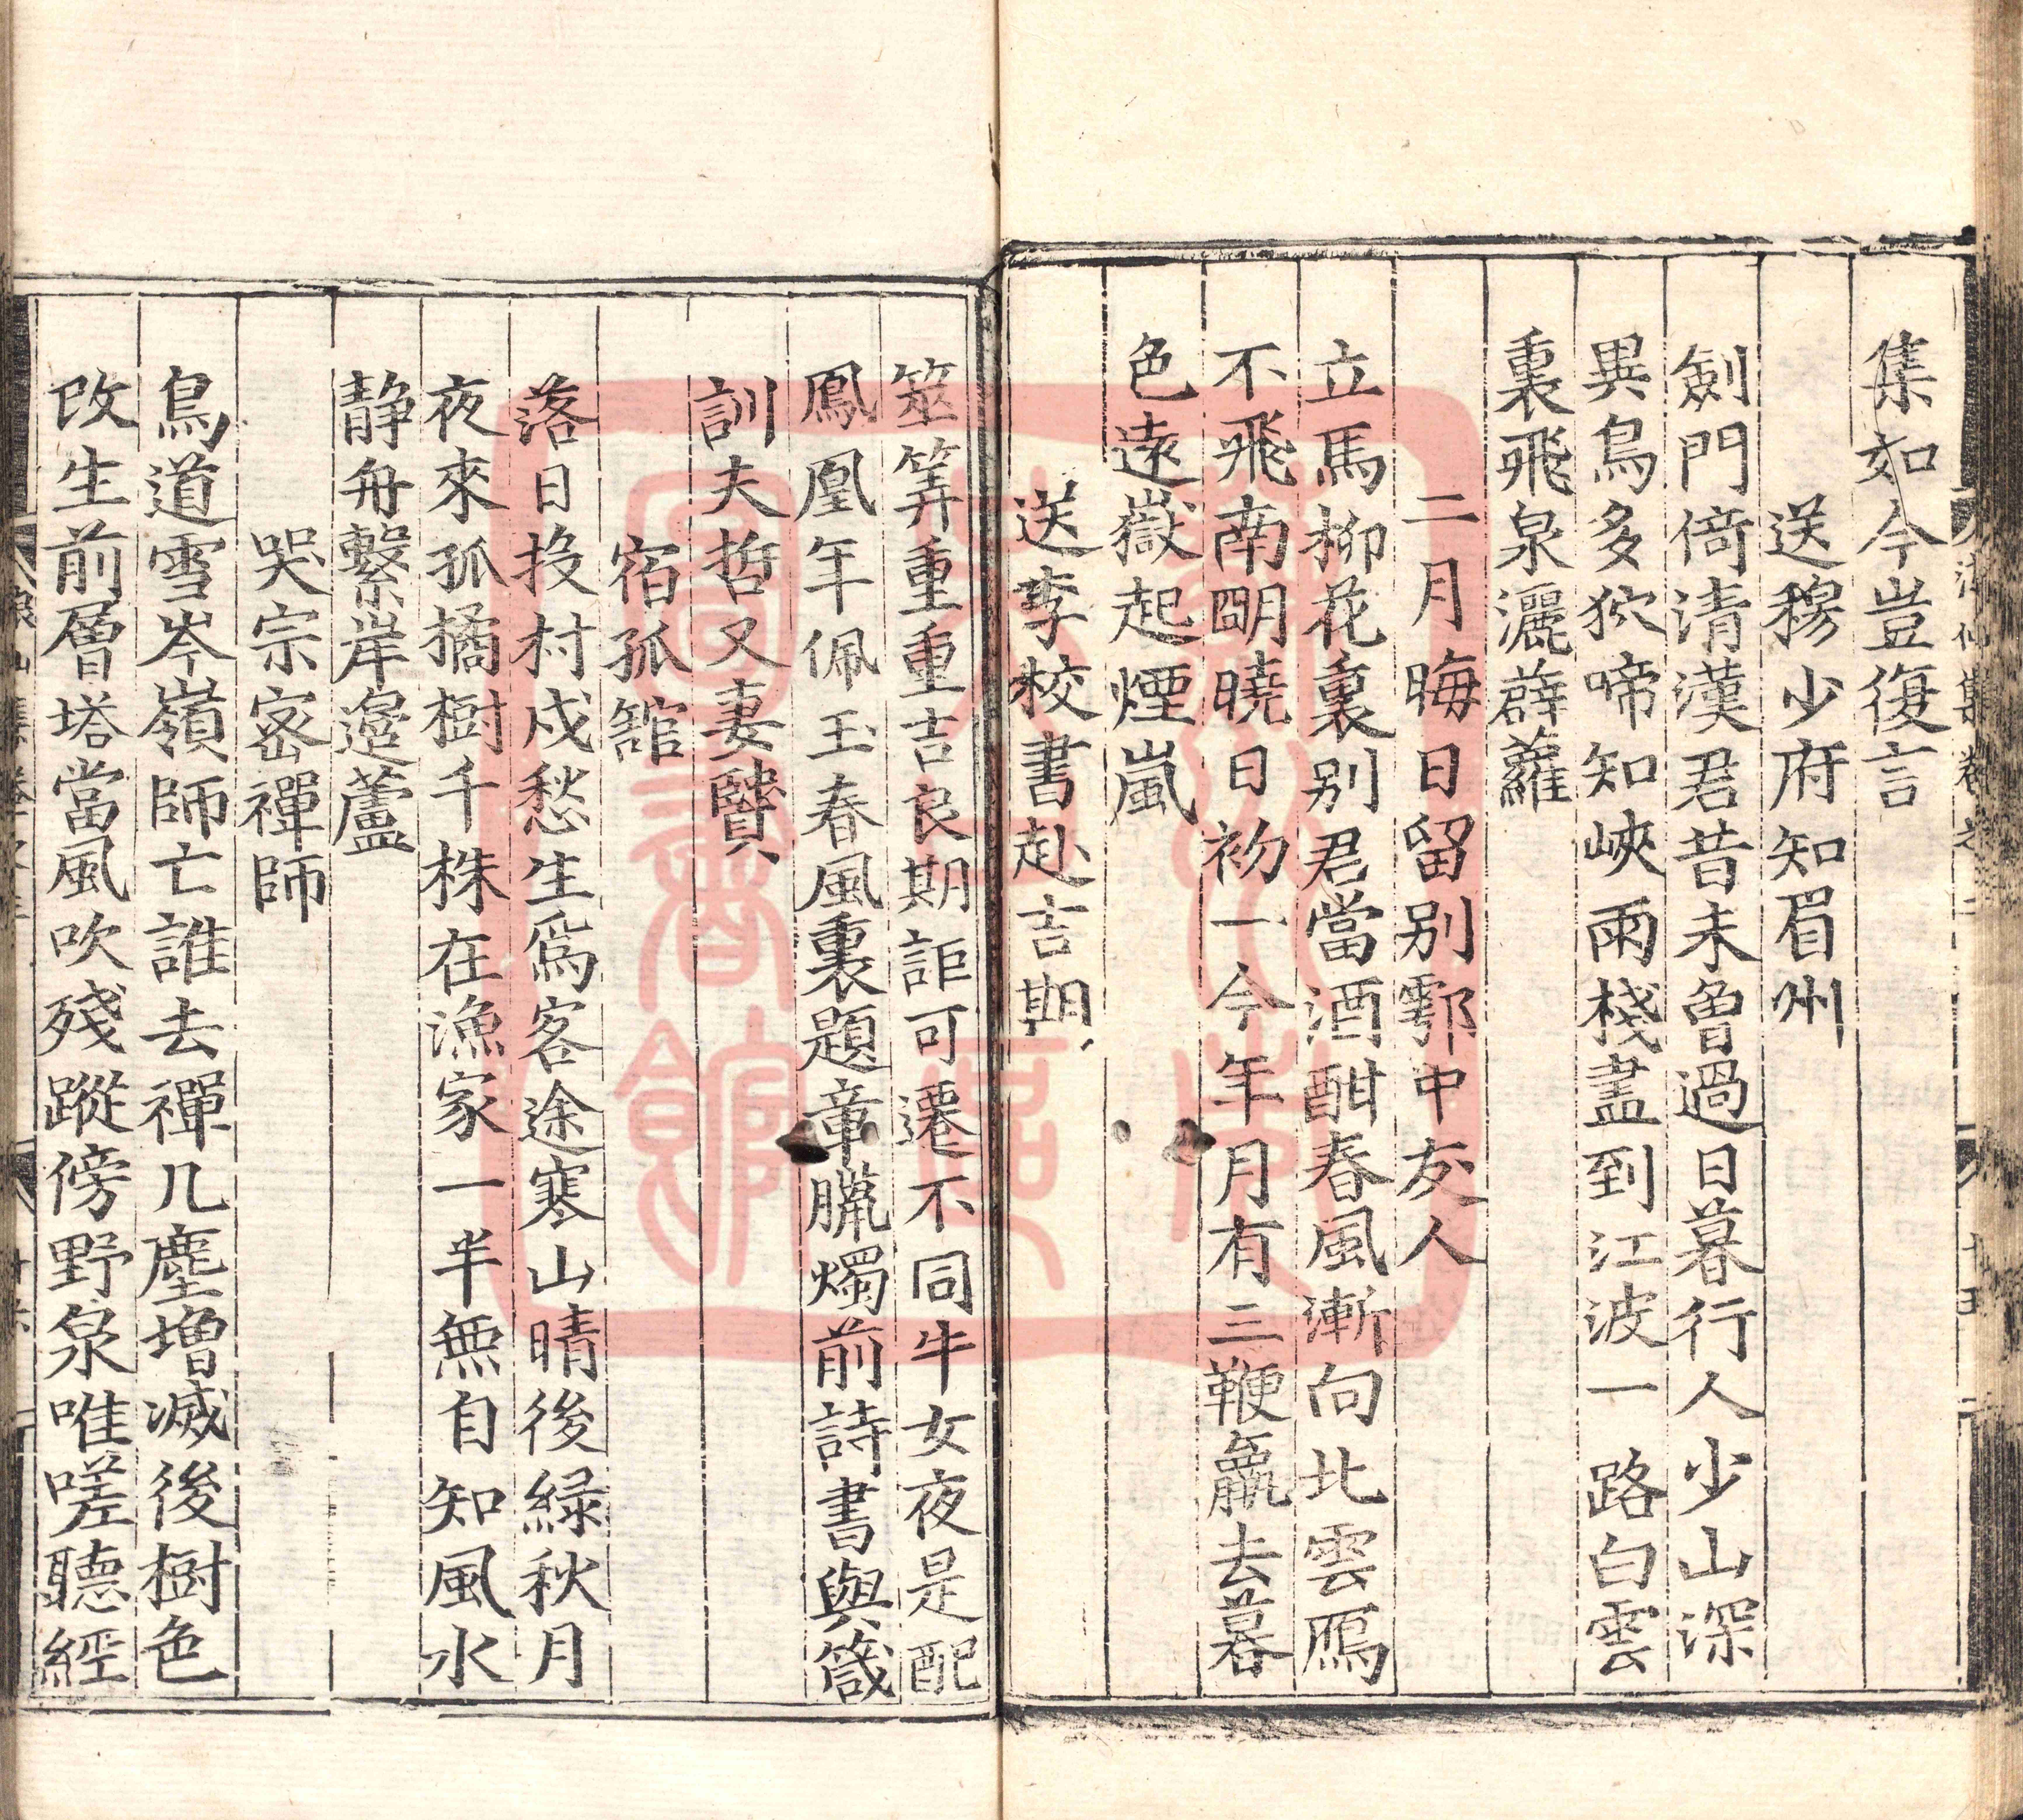 集如今豈復言
送穆少府知眉州
劍門倚清漢君昔未曾過日暮行人少山深
異鳥多狖啼知峽雨棧盡到江波一路白雲
裏飛泉灑薜蘿
二月晦日留別鄠中友人
立馬柳花裏別君當酒酣春風漸向北雲鴈
不飛南明曉日初一今年月有三鞭羸去暮
色遠嶽起煙嵐
送李校書赴吉期
筮筭重重吉良期詎可遷不同牛女夜是配
鳳凰年佩玉春風裏題章臘燭前詩書與箴
訓夫哲又妻賢
宿孤館
落日投村戍愁生爲客途寒山晴後綠秋月
夜來孤橘樹千株在漁家一半無自知風水
靜舟繫岸邊蘆
哭宗密禪師
鳥道雪岑嶺師亡誰去禪几塵增滅後樹色
改生前層塔當風吹殘蹤傍野泉唯嗟聽經